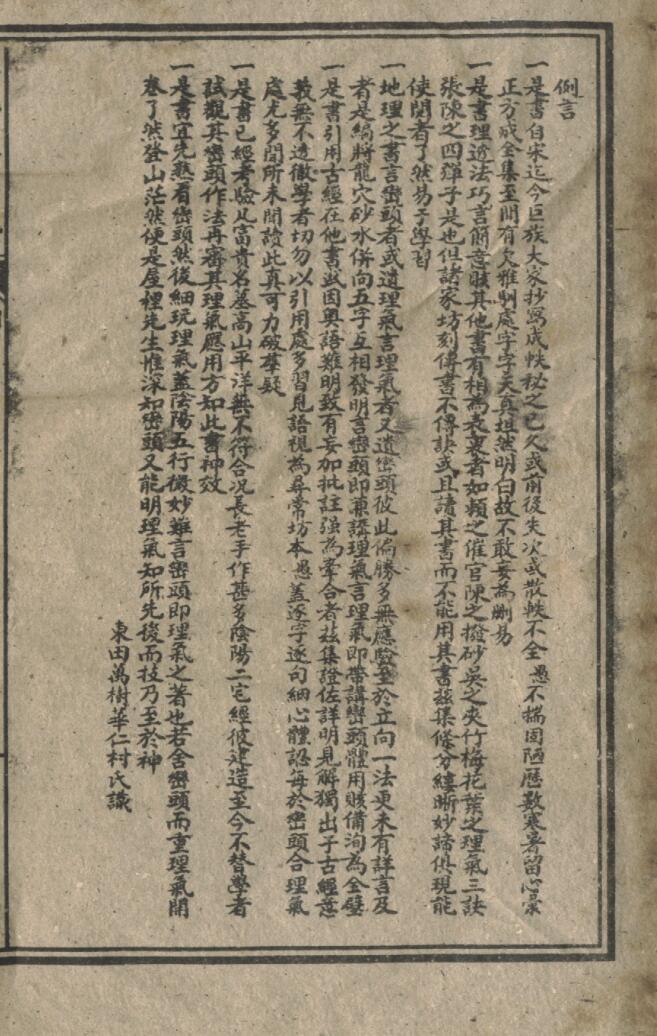 例言
一是書自宋迄今巨族大家抄寫成帙秘之已久或前後失次或散軼不全愚不揣固陋歷數寒暑留心彙
正方成全集至間有欠雅馴處字字天真坦然明白故不敢妄為刪易
一是書理透法巧言簡意賅其他書有相為表裏者如賴之催官陳之撥砂吳之夾竹梅花葉之理氣三訣
張陳之四彈子是也但諸家坊刻傳書不傳訣或且讀其書而不能用其書茲集條分縷晰妙諦俱現能
使閱者了然易于學習
一地理之書言巒頭者或遺理氣言理氣者又遺巒頭彼此偏勝多無應驗至於立向一法更未有詳言及
者是編將龍穴砂水併向五字互相發明言巒頭即兼講理氣言理氣即帶講巒頭體用賅備洵為全璧
一是書引用古經在他書或因奧語難明致有妄加批註强為牽合者茲集證佐詳明見解獨出于古經意
義無不透徹學者切勿以引用處多習見語視為尋常坊本愚蓋逐字逐句細心體認每於巒頭合理氣
處尤多間所未聞證此真可力破羣疑
一是書已經考驗凡富貴名墓高山平洋無不符合况長老手作甚多陰陽二宅經彼建造至今不替學者
試觀其巒頭作法再審其理氣應用方知此書神效
一是書宜先熟看巒頭然後細玩理氣蓋陰陽五行微妙難言巒頭即理氣之著也若舍巒頭而重理氣開
卷了然登山茫然便是屋裡先生惟深知巒頭又能明理氣知所先後而技乃至於神
東田萬樹華仁村氏識